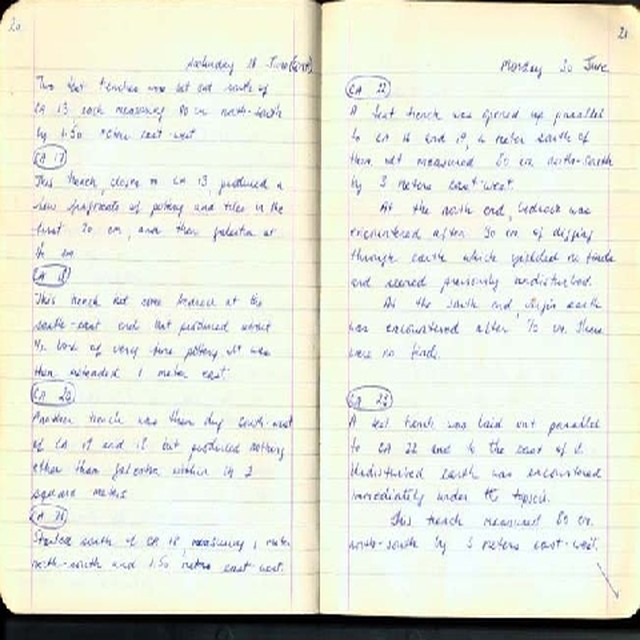 20
Saturday 18 June (cont)
Two test trenches were set out south of
CA 13 each measuring 80 cm north-south
by 1.50 meters east-west
CA 17
This trench, closer to CA 13 produced a
few fragments of pottery and tiles in the
first 20 cm, and then galestra at
cm
CA 18
This trench hit some bedrock at the
south-east end but produced about
½ box of very fine pottery. It was
then extended 1 meter east.
CA 20
Another trench was then dug south-west
of CA 17 and 18 but produced nothing
other than galestra within its 2
square meters
CA
Started south of CA 18, measuring 1 meter
north-south and 1.50 metres east west.
21
Monday 20 June
CA 22
A test trench was opened up parallel
to CA 16 and 19, a meter south of
them. It measured 80 cm north-south
by 3 meters east-west.
At the north end, bedrock was
encountered after 30 cm of digging
through earth which yielded no finds
and seemed previously undisturbed.
At the south end, virgin earth
was encountered after cm. There
were no finds.
CA 23
A test trench was laid out parallel
to CA 22 and to the east of it.
Undisturbed earth was encountered
immediately under the topsoil.
This trench measured 80 cm.
north-south by 3 meters east-west.